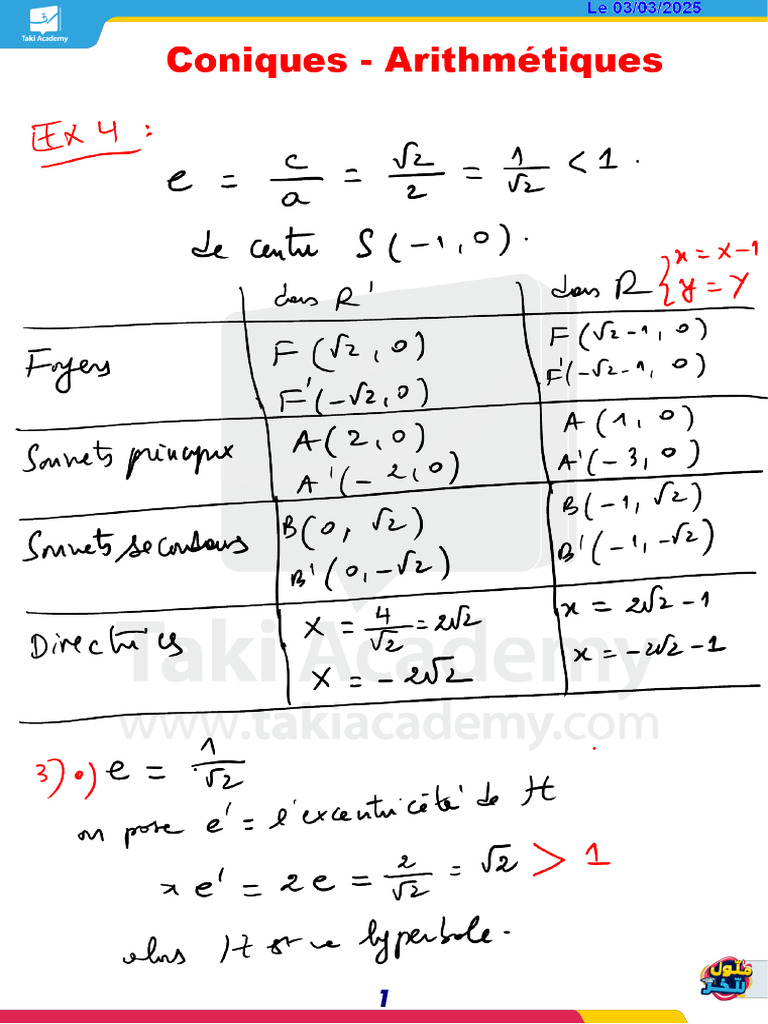 Le 03/03/2025
Taki Academy
Coniques - Arithmétiques
Ex 4 :
e = c/a = √2/2 = 1/√2 < 1.
de centre S(-1,0).
dans R' dans R { x = X-1
y = Y
Foyers F(√2,0) F(√2-1,0)
F'(-√2,0) F'(-√2-1,0)
Sommets principaux A(2,0) A(1,0)
A'(-2,0) A'(-3,0)
Sommets secondaires B(0,√2) B(-1,√2)
B'(0,-√2) B'(-1,-√2)
Directrices X = 4/√2 = 2√2 x = 2√2-1
X = -2√2 x = -2√2-1
Taki Academy
www.takiacademy.com
3) •) e = 1/√2
on pose e' = l'excentricité de H
x e' = 2e = 2/√2 = √2 > 1
alors H est une hyperbole.
1